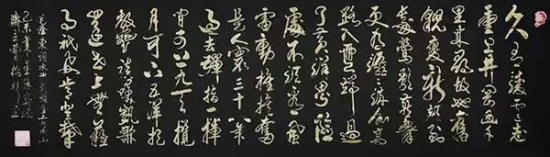 久有凌云志
重上井冈山千
里来寻故地旧
貌变新颜到
处莺歌燕舞
更有潺潺流水高
路入云端过
了黄洋界险
处不须看风
雷动旌旗奋
是人寰三十八年
过去弹指一挥
间可上九天揽
月可下五洋捉
鳖谈笑凯歌
还世上无难
事只要肯登攀
毛泽东词水调歌头重上井冈山